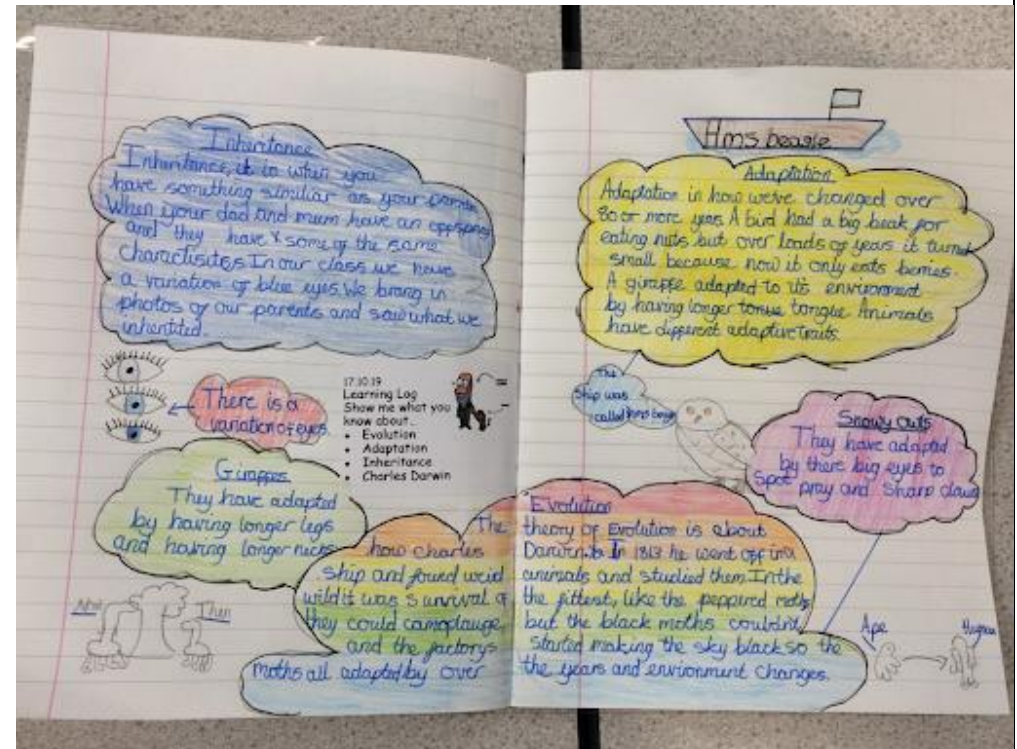 Inheritance
Inheritance, it is when you
have something similiar as your parents
When your dad and mum have an offspring
and they have some of the same
charactisites In our class we have
a variation of blue eyes. We brang in
photos of our parents and saw what we
inherited.
There is a
variation of eyes
17.10.19
Learning Log
Show me what you
know about...
• Evolution
• Adaptation
• Inheritance
• Charles Darwin
Giraffes
They have adapted
by having longer legs
and having longer necks
Now
Then
Hms beagle
Adaptation
Adaptation is how we've changed over
80 or more years A bird had a big beak for
eating nuts but over loads of years it turned
small because now it only eats berries.
A giraffe adapted to its environment
by having longer tonue tongue. Animals
have different adaptive traits.
The
ship was
called Hms beagle
Snowy owls
They have adapted
by there big eyes to
spot prey and sharp claws
Evolution
The theory of Evolution is about
how charles Darwin. In 1813 he went off in a
ship and found weid animals and studied them. In the
wild it was survival of the fittest, like the peppered moths
they could camoplauge but the black moths couldnt
and the factorys started making the sky black so the
moths all adapted by over the years and envrionment changes.
Ape
Human